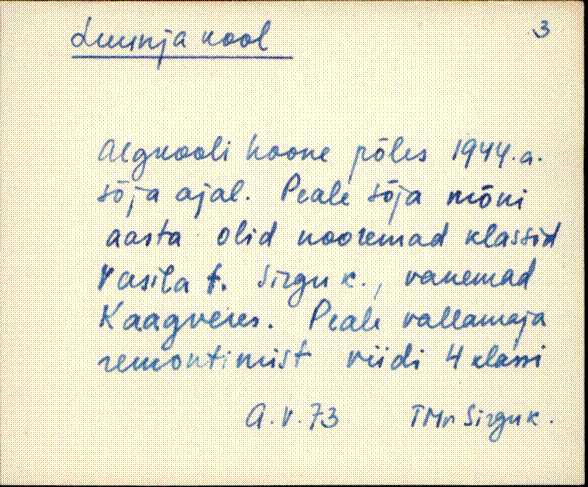 Luunja kool
3
Algkooli hoone põles 1944.a.
sõja ajal. Peale sõja mõni
aasta olid nooremad klassid
Vasila t. Sirgu k., vanemad
Kaagveres. Peale vallamaja
remontimist viidi 4 klassi
A.V.73 TMr Sirgu k.